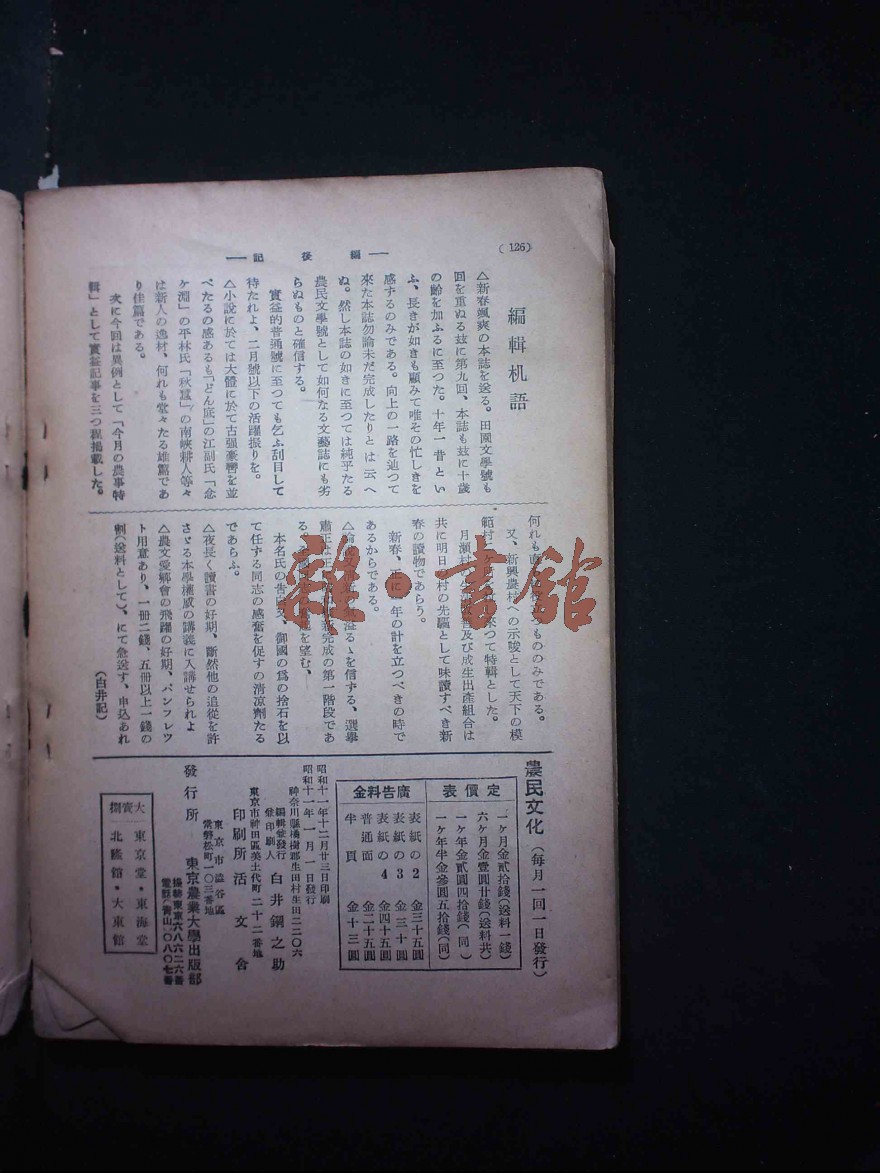 (126)
― 編後記 ―
編輯机語
△新春颯爽の本誌を送る。田園文學號も
回を重ぬる玆に第九回、本誌も玆に十歲
の齡を加ふるに至つた。十年一昔とい
ふ、長きが如きも顧みて唯その忙しきを
感ずるのみである。向上の一路を辿つて
來た本誌勿論未だ完成したりとは云へ
ぬ。然し本誌の如きに至つては純乎たる
農民文學號として如何なる文藝誌にも劣
らぬものと確信する。
實益的普通號に至つても乞ふ刮目して
待たれよ、二月號以下の活躍振りを。
△小說に於ては大體に於て古强豪轡を並
べたるの感あるも「どん底」の江副氏「念
ケ淵」の平林氏「秋蠶」の南峽耕人等々
は新人の逸材、何れも堂々たる雄篇であ
り佳篇である。
次に今回は異例として「今月の農事特
輯」として實益記事を三つ程揭載した。
何れも
もののみである。
又、新興農村への示唆として天下の模
範村
來つて特輯とした。
月瀨村
及び成生出產組合は
共に明日の村の先驅として味讀すべき新
春の讀物であらう。
新春、正に
年の計を立つべきの時で
あるからである。
溢るゝを信ずる、選擧
肅正は
完成の第一階段であ
る、
を望む、
本名氏の
御國の爲の捨石を以
て任ずる同志の感奮を促すの淸凉劑たる
であらふ。
△夜長く讀書の好期、斷然他の追從を許
さゞる本學權威の講義に入講せられよ
△農文愛鄕會の飛躍の好期、パンフレツ
ト用意あり、一冊二錢、五冊以上一錢の
割(送料として)、にて急送す、申込あれ
(白井記)
農民文化 (每月一回一日發行)
定價表
一ヶ月金貳拾錢(送料一錢)
六ヶ月金壹圓廿錢(送料共)
一ヶ年金貳圓四拾錢(同)
一ヶ年半金參圓五拾錢(同)
廣告料金
表紙の2 金三十五圓
表紙の3 金三十圓
表紙の4 金四十五圓
普通面 金二十五圓
半頁 金十三圓
昭和十一年十二月廿三日印刷
昭和十一年一月一日發行
神奈川縣橘樹郡生田村生田二二〇六
編輯兼發行兼印刷人 白井鋼之助
東京市神田區美土代町二十二番地
印刷所 活文舍
東京市澁谷區常磐松町一〇三番地
發行所 東京農業大學出版部
振替東京六八六二六番
電話(靑山)〇八〇七番
大賣捌
東京堂・東海堂
北隆館・大東館
雜・書館